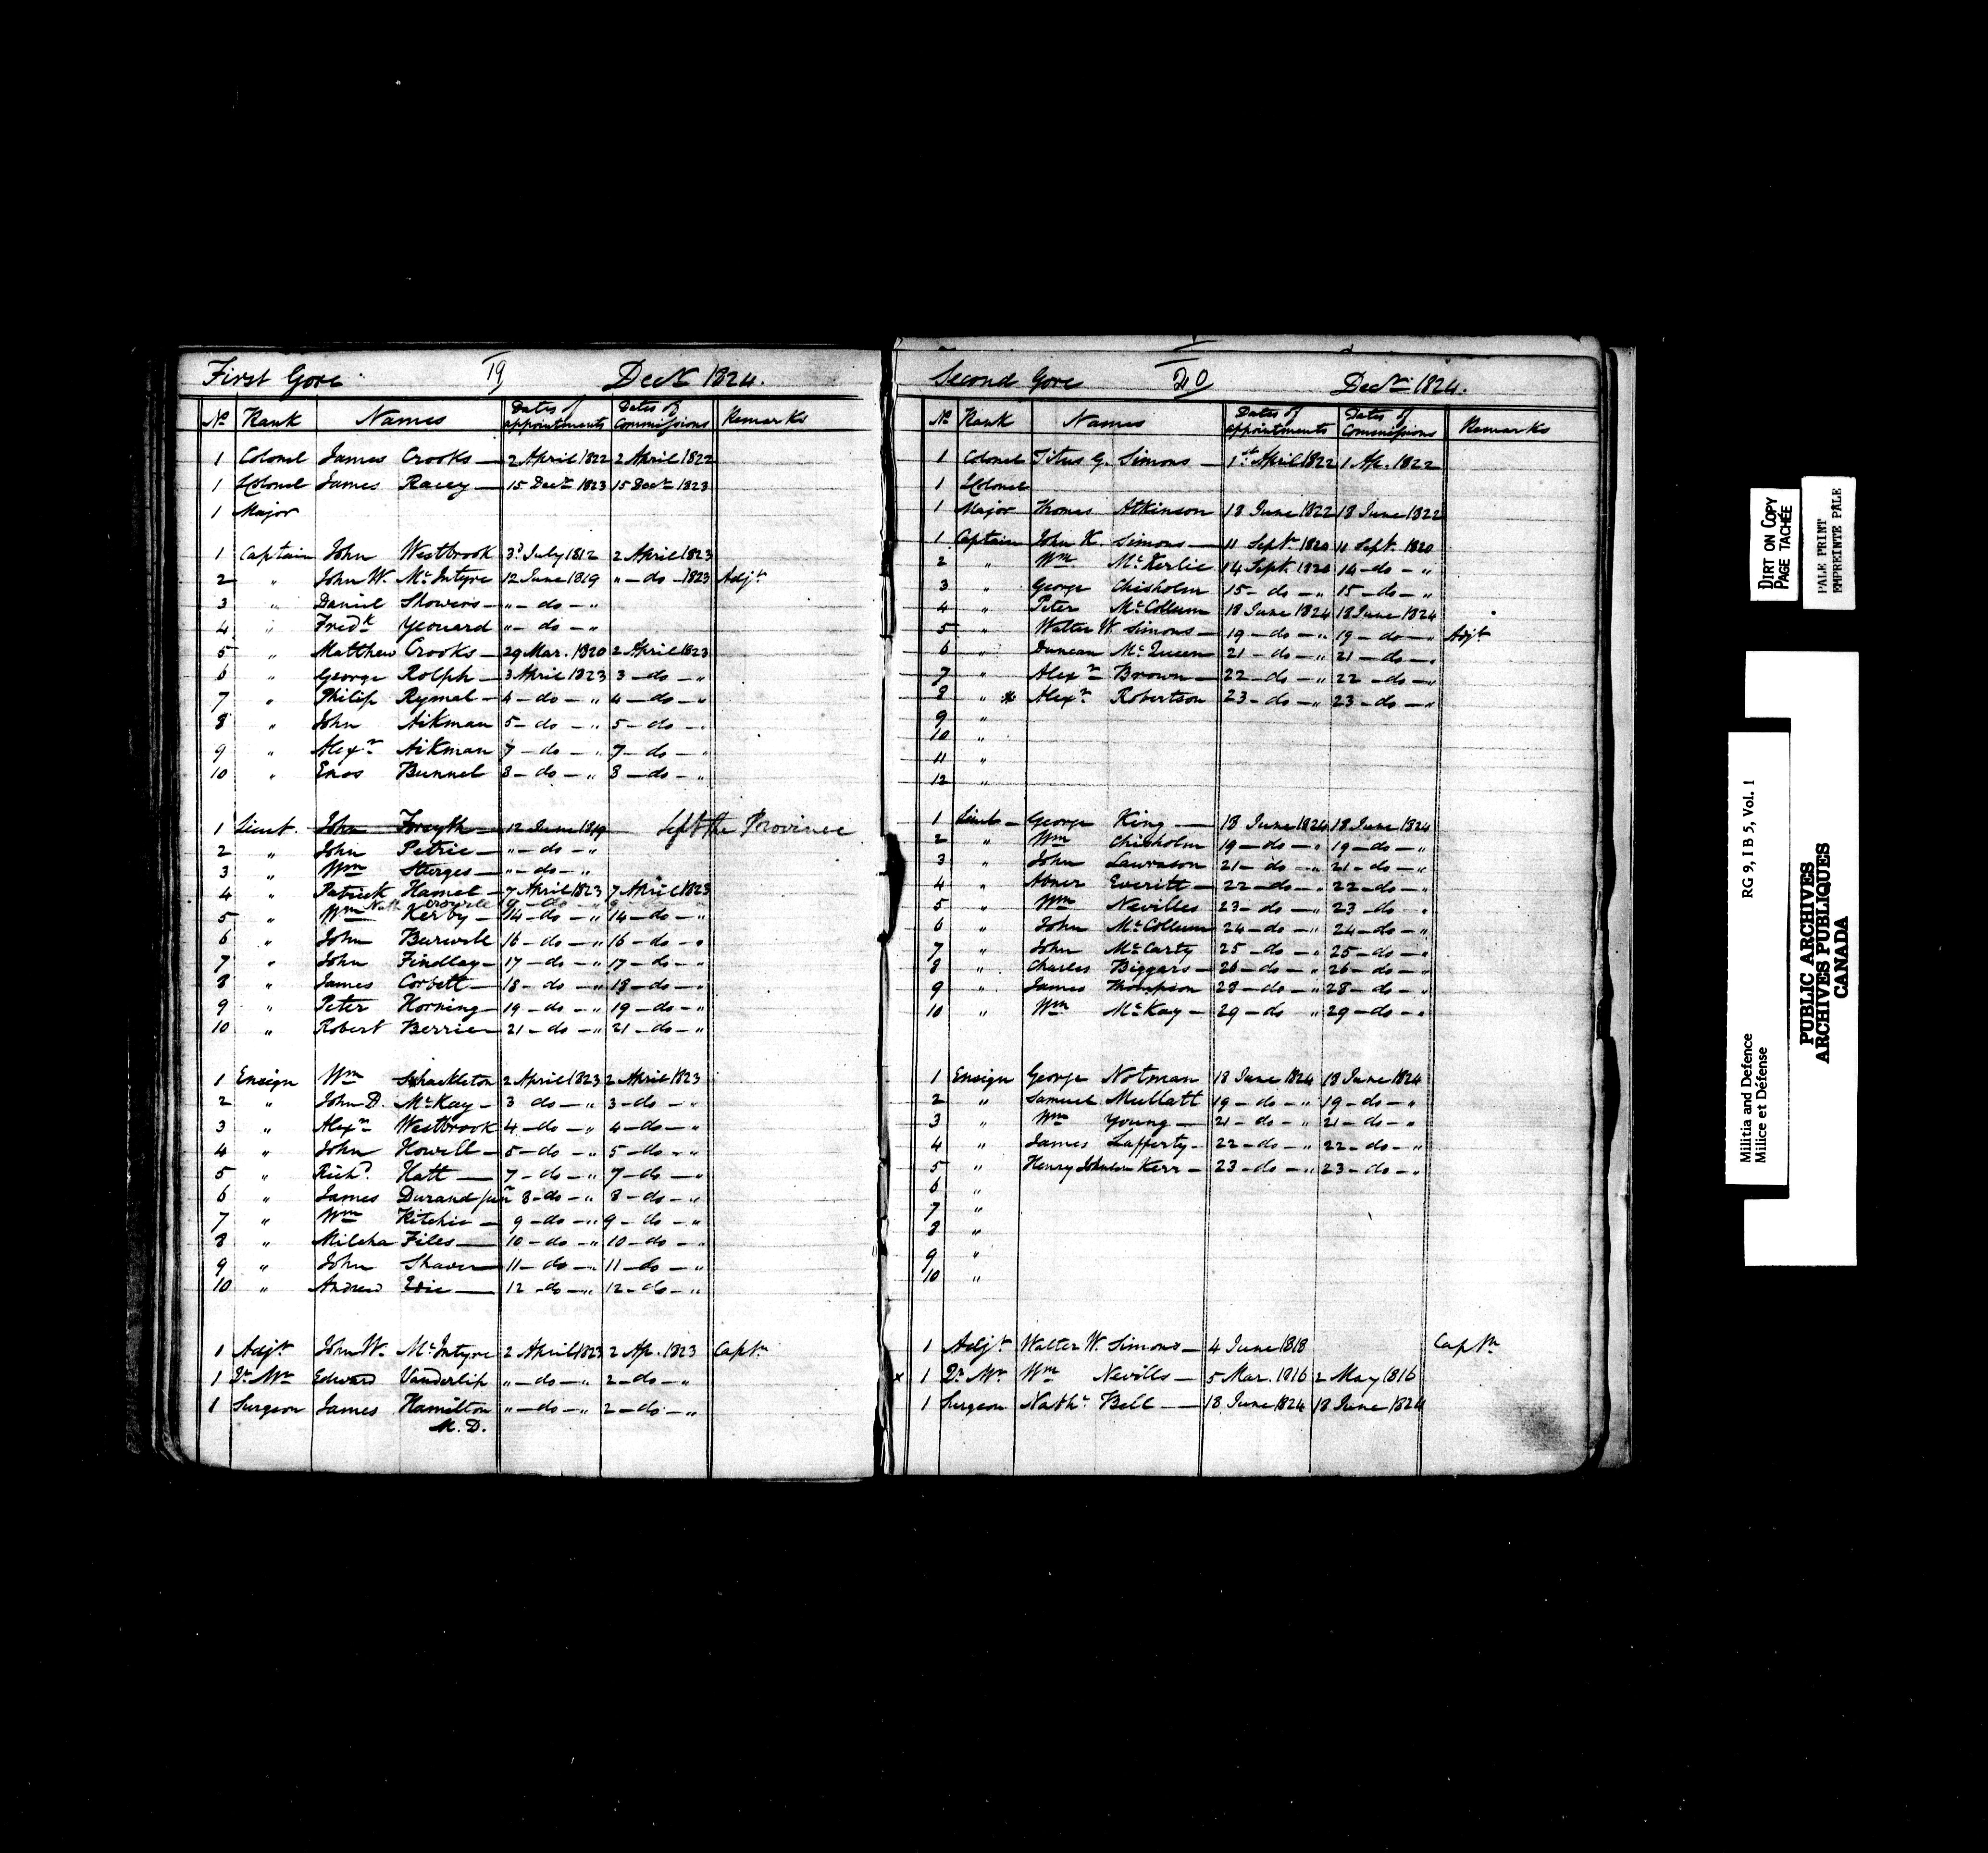 First Gore 19 Decr 1824.
No Rank Names Dates of appointments Dates of Commissions Remarks
1 Colonel James Crooks — 2 April 1822 2 April 1822
1 Lt Colonel James Racey — 15 Decr 1823 15 Decr 1823
1 Major
1 Captain John Westbrook 3d July 1812 2 April 1823
2 " John W. McIntyre 12 June 1819 " — do — 1823 Adjt
3 " Daniel Showers — " — do — "
4 " Fredk Yeouard " — do — "
5 " Matthew Crooks — 29 Mar. 1820 2 April 1823
6 " George Rolph — 3 April 1823 3 — do — "
7 " Philip Rymal — 4 — do — " 4 — do — "
8 " John Aikman 5 — do — " 5 — do — "
9 " Alexr Aikman 7 — do — " 7 — do — "
10 " Enos Bunnel 8 — do — " 8 — do — "
1 Lieut. John Forsyth — 12 June 1819 Left the Province
2 " John Petrie — " — do — "
3 " Wm Sturges — " — do — "
4 " Patrick Hamet — 7 April 1823 7 April 1823
9 — do — " 9
5 " Wm Kerby — 14 — do — " 14 — do — "
6 " John Burwele 16 — do — " 16 — do — "
7 " John Findlay — 17 — do — " 17 — do — "
8 " James Corbett — 18 — do — " 18 — do — "
9 " Peter Horning — 19 — do — " 19 — do — "
10 " Robert Berrie — 21 — do — " 21 — do — "
1 Ensign Wm Shackleton 2 April 1823 2 April 1823
2 " John D. McKay — 3 do — " 3 — do — "
3 " Alexr Westbrook 4 — do — " 4 — do — "
4 " John Howell — 5 — do — " 5 — do — "
5 " Richd. Hatt — 7 — do — " 7 — do — "
6 " James Durand junr 8 — do — " 8 — do — "
7 " Wm Ritchie — 9 — do — " 9 — do — "
8 " Milcha Files — 10 — do — " 10 — do — "
9 " John Shaver — 11 — do — " 11 — do — "
10 " Andrew Edie — 12 — do — " 12 — do — "
1 Adjt John W. McIntyre 2 April 1823 2 Ap. 1823 Captn
1 Qr Mr Edward Vanderlip " — do — " 2 — do — "
1 Surgeon James Hamilton " — do — " 2 — do — "
M.D.
Second Gore 20 Decr 1824.
No Rank Names Dates of appointments Dates of Commissions Remarks
1 Colonel Titus G. Simons — 1st April 1822 1 Ap. 1822
1 Lt Colonel
1 Major Thomas Atkinson 18 June 1822 18 June 1822
1 Captain John K. Simons — 11 Sept. 1820 11 Sept. 1820
2 " Wm McKerlie 14 Sept. 1820 14 — do — "
3 " George Chisholm 15 — do — " 15 — do — "
4 " Peter McCollum 18 June 1824 18 June 1824
5 " Walter W. Simons — 19 — do — " 19 — do — " Adjt
6 " Duncan McQueen 21 — do — " 21 — do — "
7 " Alexr Brown — 22 — do — " 22 — do — "
8 " x Alexr. Robertson 23 — do — " 23 — do — "
9 "
10 "
11 "
12 "
1 Lieut — George King — 18 June 1824 18 June 1824
2 " Wm Chisholm 19 — do — " 19 — do — "
3 " John Lawrason 21 — do — " 21 — do — "
4 " Abner Everitt — 22 — do — " 22 — do — "
5 " Wm Nevilles 23 — do — " 23 — do "
6 " John McCollum 24 — do — " 24 — do — "
7 " John McCarty 25 — do — " 25 — do — "
8 " Charles Biggars — 26 — do — " 26 — do — "
9 " James Thompson 28 — do — " 28 — do — "
10 " Wm McKay — 29 — do " 29 — do — "
1 Ensign George Notman 18 June 1824 18 June 1824
2 " Samuel Mullatt 19 — do — " 19 — do — "
3 " Wm Young — 21 — do — " 21 — do — "
4 " James Lafferty — 22 — do — " 22 — do — "
5 " Henry Johnson Kerr — 23 — do — " 23 — do — "
6 "
7 "
8 "
9 "
10 "
1 Adjt Walter W. Simons — 4 June 1818 Captn
x 1 Qr Mr Wm Nevills — 5 Mar. 1816 2 May 1816
1 Surgeon Nathl. Bell — 18 June 1824 18 June 1824
DIRT ON COPY
PAGE TACHÉE
PALE PRINT
EMPREINTE PÂLE
Militia and Defence
Milice et Défense
RG 9, I B 5, Vol. 1
PUBLIC ARCHIVES
ARCHIVES PUBLIQUES
CANADA